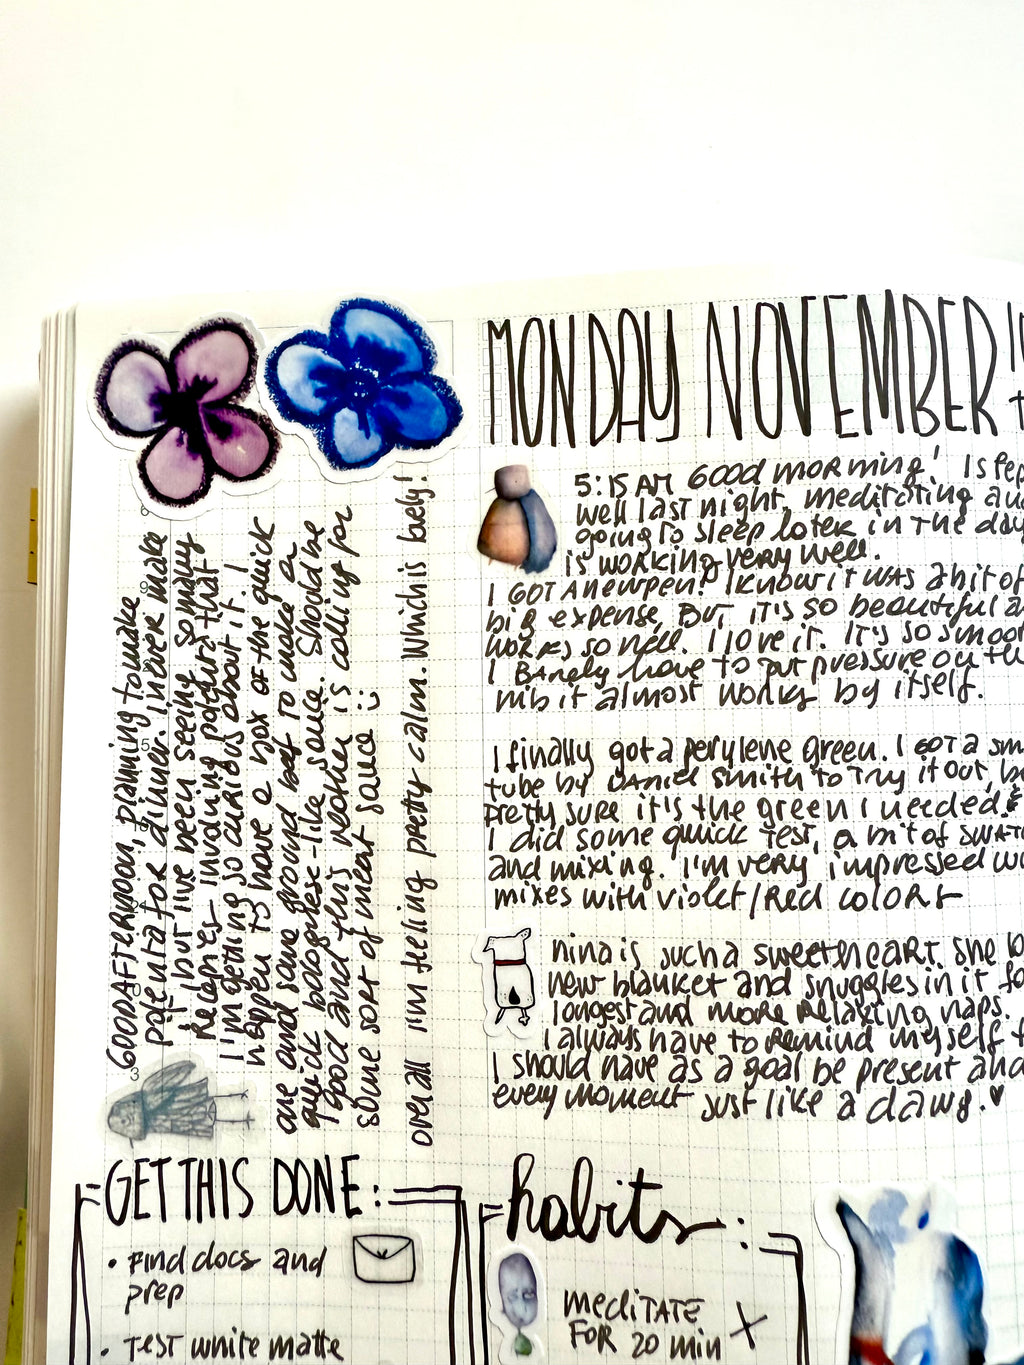 MONDAY NOVEMBER
5:15 AM GOOD morning! I slep
well last night, meditating an
going to sleep later in the day
is working very well.
I GOT A new pen! I know it was a bit of
big expense, But, it's so beautiful a
works so well. I love it. It's so smoo
I Barely have to put pressure on th
nib it almost works by itself.
I finally got a perylene green. I GOT a sm
tube by Daniel Smith to try it out, b
pretty sure it's the green I needed.
I did some quick test, a bit of swat
and mixing. I'm very impressed w
mixes with violet/Red colors
nina is such a sweetheart. She
new blanket and snuggles in it fo
longest and more relaxing naps.
I always have to remind myself t
I should have as a goal be present and
every moment just like a dawg. ♥
GOOD AFTERNOON, planning to make
polenta for dinner. I never make
it, but I've been seeing so many
Recipes involving polenta that
I'm getting so curious about it. I
happen to have a box of the quick
one and some ground beef to make a
quick bolognese-like sauce. Should be
good and this weather is calling for
some sort of meat sauce :)
overall I'm feeling pretty calm. Which is lovely!
GET THIS DONE:
• Find docs and
prep
• Test white matte
habits:
meditate
FOR 20 min X